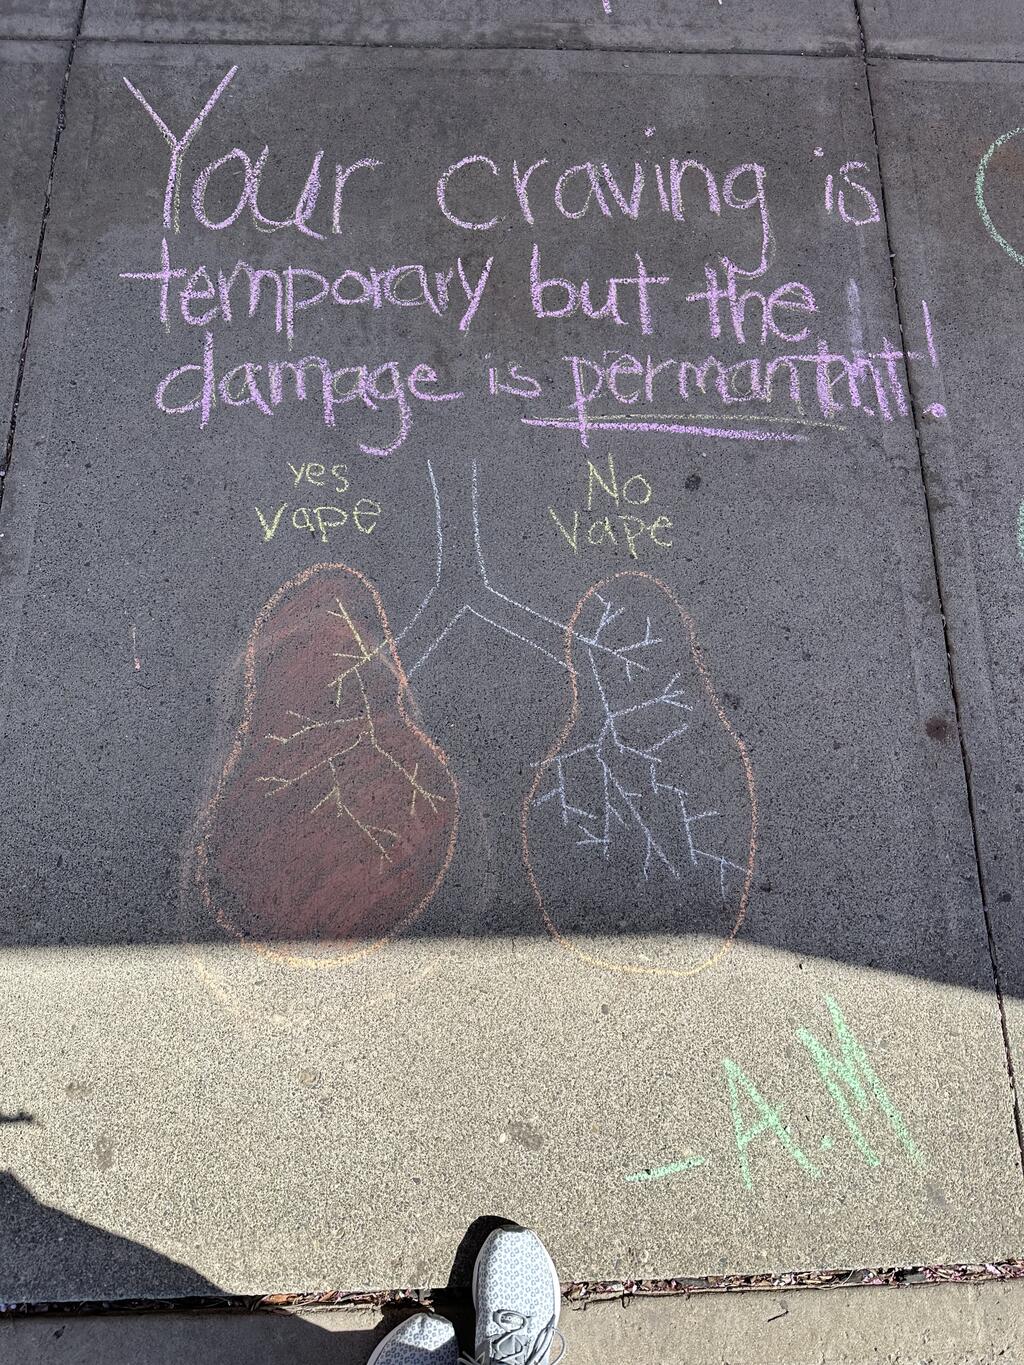 Your craving is
temporary but the
damage is permantent!
yes
vape
No
Vape
- A.M